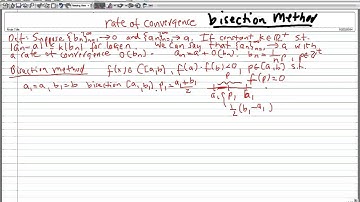 rate of convergence bisection method
Def: Suppose {bn}∞n=1 → 0 and {an}∞n=1 → a, If constant k ∈ R+ s.t.
|an - a| ≤ k|bn| for large n. We can say that {an}∞n=1 → a with
a rate of convergence O(bn). an = a + O(bn). bn = 1/nᵖ, p ∈ Z+
Bisection method f(x) ∈ C[a,b], f(a)·f(b)<0, p ∈ (a,b) s.t.
a₁=a, b₁=b bisection [a₁,b₁]. p₁ = a₁+b₁/2 f(p)=0
p
a₁ p₁
1/2(b₁-a₁)